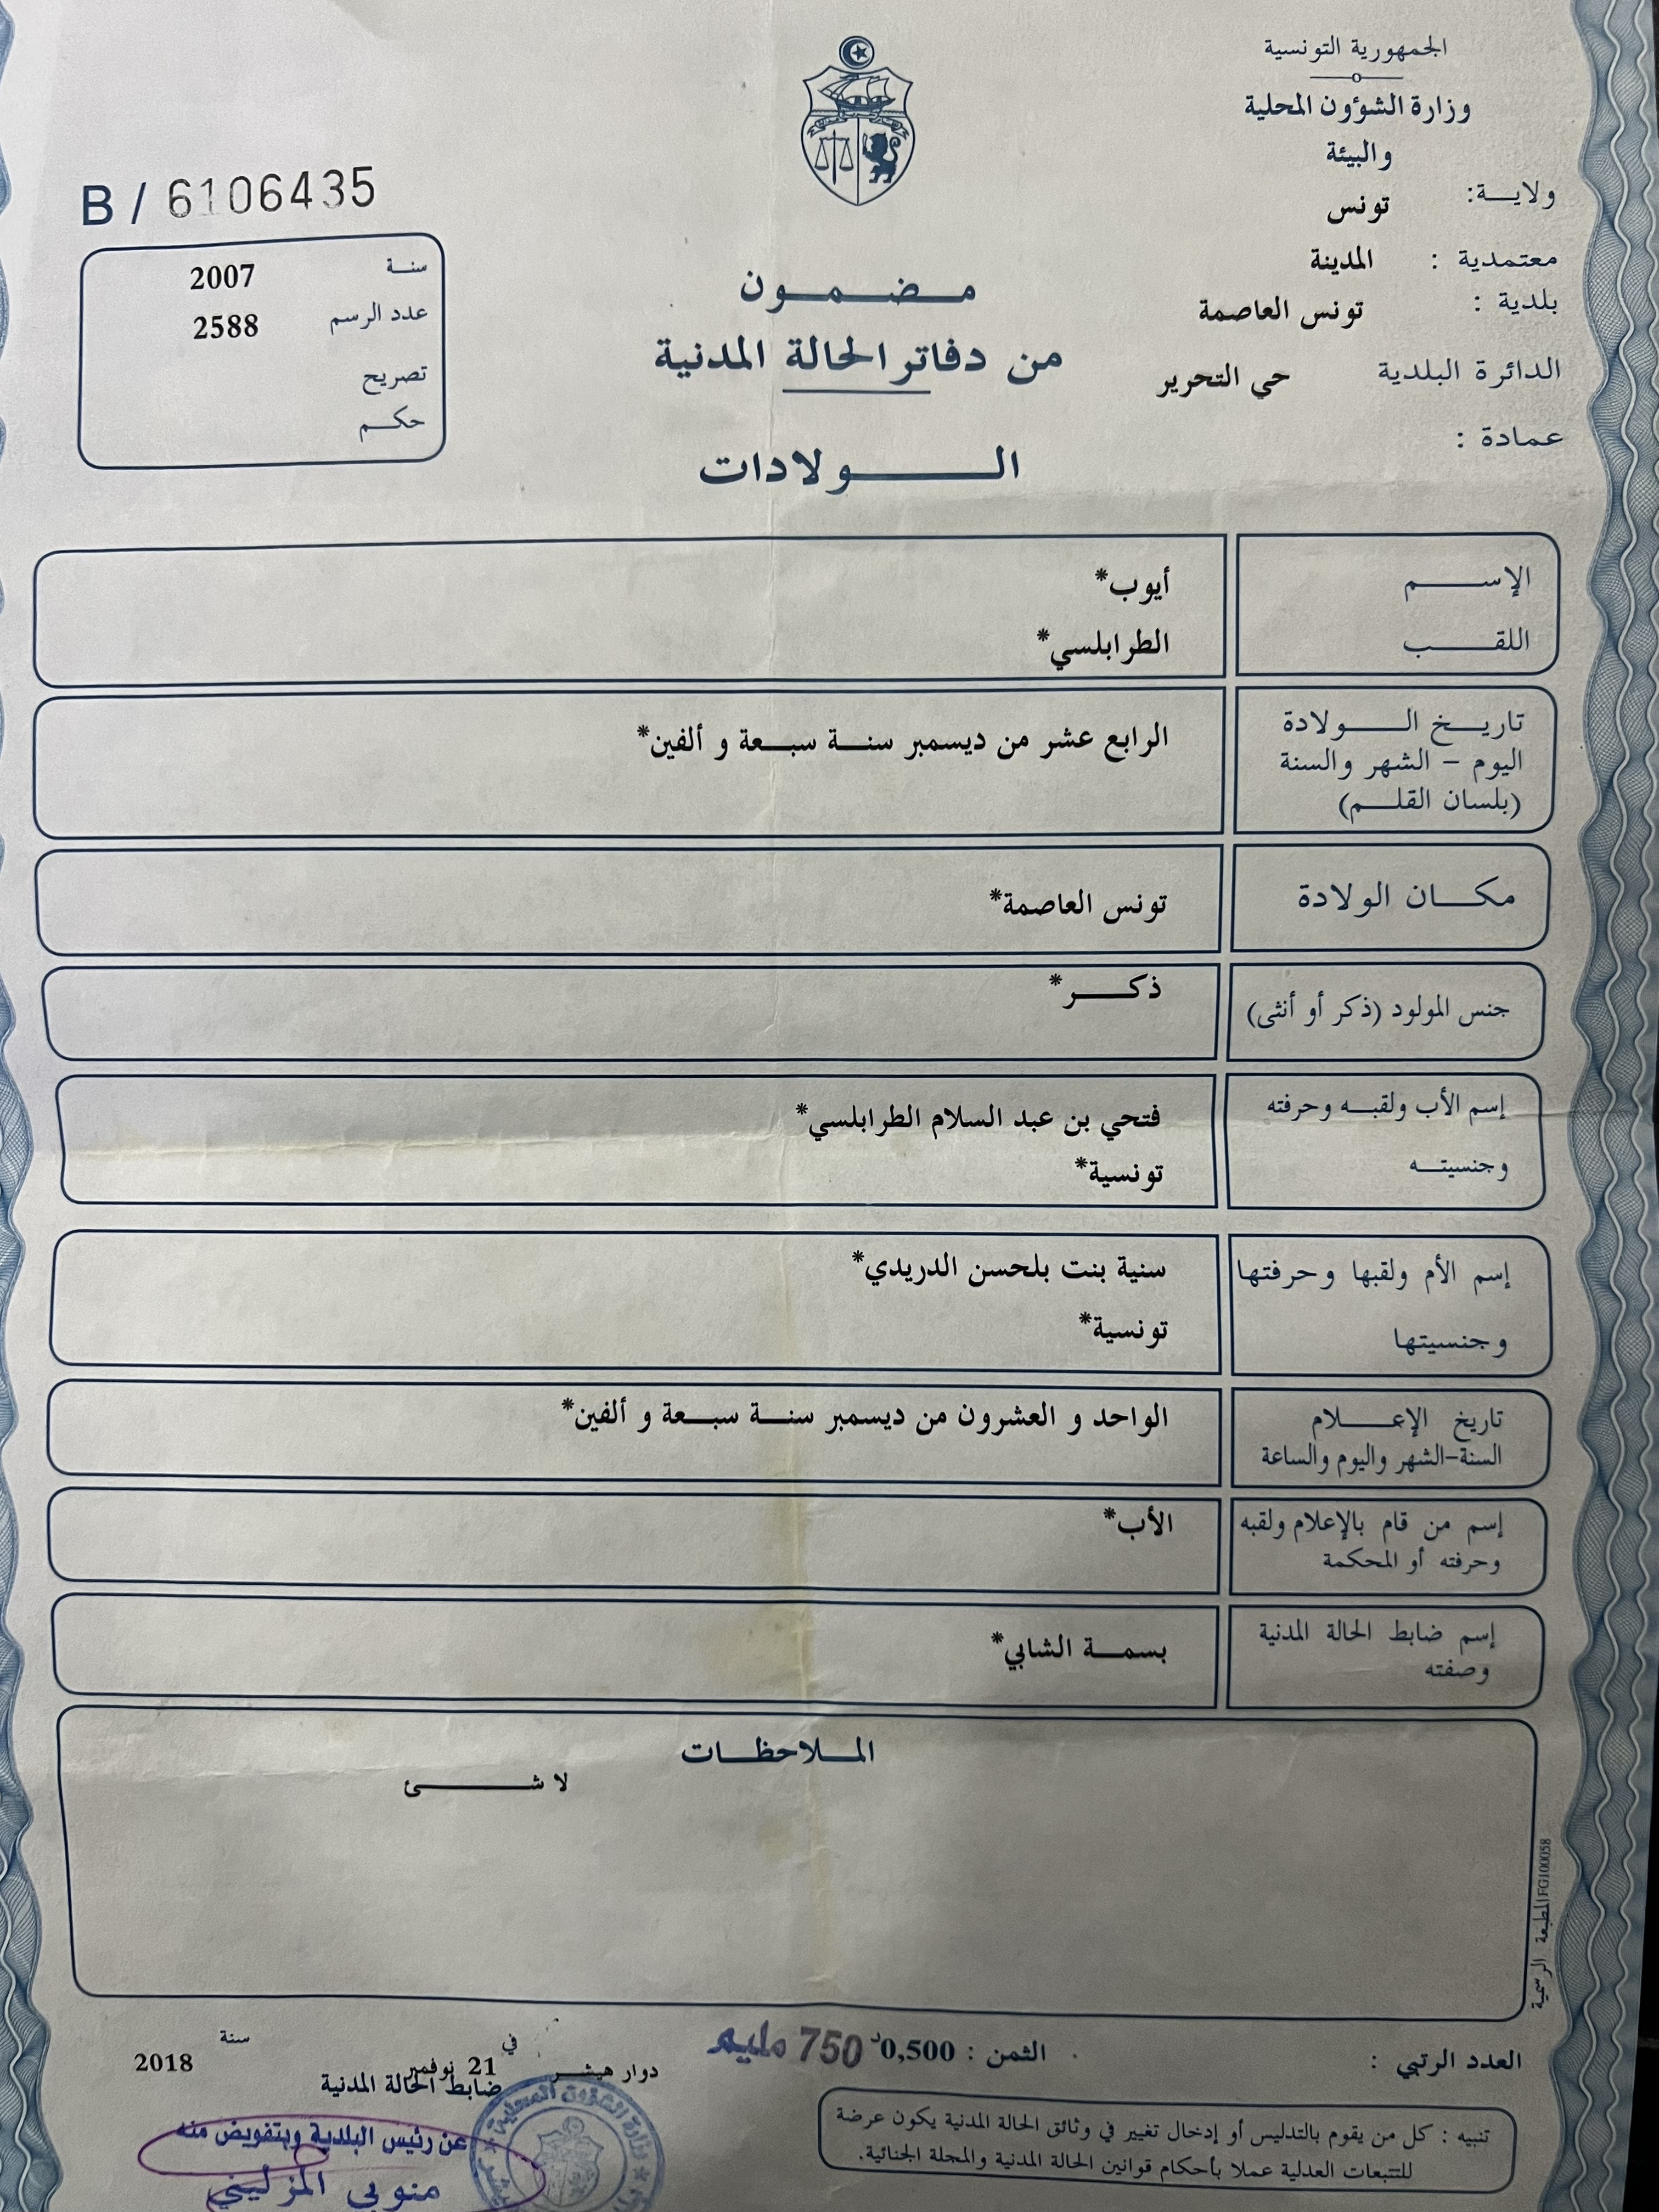 الجمهورية التونسية
وزارة الشؤون المحلية
والبيئة
ولايـــة: تونس
معتمدية : المدينة
بلدية : تونس العاصمة
الدائرة البلدية حي التحرير
عمادة :
B / 6106435
سنـــة 2007
عدد الرسم 2588
تصريح
حكـــم
مــضــمــون
من دفاتر الحالة المدنية
الـــولادات
الإســـــم أيوب*
اللقـــــب الطرابلسي*
تاريـــخ الـــــولادة
اليوم – الشهر والسنة
(بلسان القلـــم)
الرابع عشر من ديسمبر سنـــة سبـــعة و ألفين*
مكـــان الولادة تونس العاصمة*
جنس المولود (ذكر أو أنثى) ذكـــــر*
إسم الأب ولقبـــه وحرفته فتحي بن عبد السلام الطرابلسي*
وجنسيتـــه تونسية*
إسم الأم ولقبها وحرفتها سنية بنت بلحسن الدريدي*
وجنسيتها تونسية*
تاريخ الإعـــــلام
السنة-الشهر واليوم والساعة
الواحد و العشرون من ديسمبر سنـــة سبـــعة و ألفين*
إسم من قام بالإعلام ولقبه
وحرفته أو المحكمة
الأب*
إسم ضابط الحالة المدنية
وصفته
بسمـــة الشابي*
الملاحظـــات
لا شـــــئ
المطبعة الرسمية FG100058
العدد الرتبي :
الثمن : 0,500د 750 مليم
دوار هيشـــر في 21 نوفمبر سنة 2018
ضابط الحالة المدنية
عن رئيس البلدية وبتفويض منه
منوبي المزليني
تنبيه : كل من يقوم بالتدليس أو إدخال تغيير في وثائق الحالة المدنية يكون عرضة
للتتبعات العدلية عملا بأحكام قوانين الحالة المدنية والمجلة الجنائية.